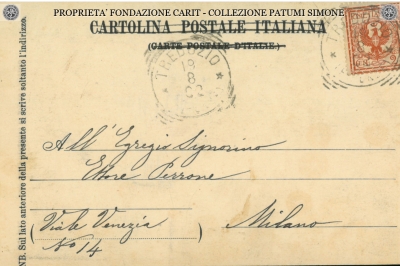 PROPRIETA' FONDAZIONE CARIT - COLLEZIONE PATUMI SIMONE
CARTOLINA POSTALE ITALIANA
(CARTE POSTALE D'ITALIE)
18
8
All' Egregio Signorino
Ettore Perrone
(Viale Venezia
No 14)
Milano
NB. Sul lato anteriore della presente si scrive soltanto l'indirizzo.